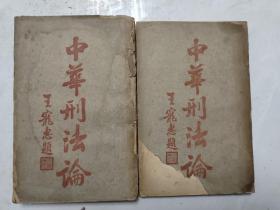 中華刑法論
王寵惠題
中華刑法論
王寵惠題